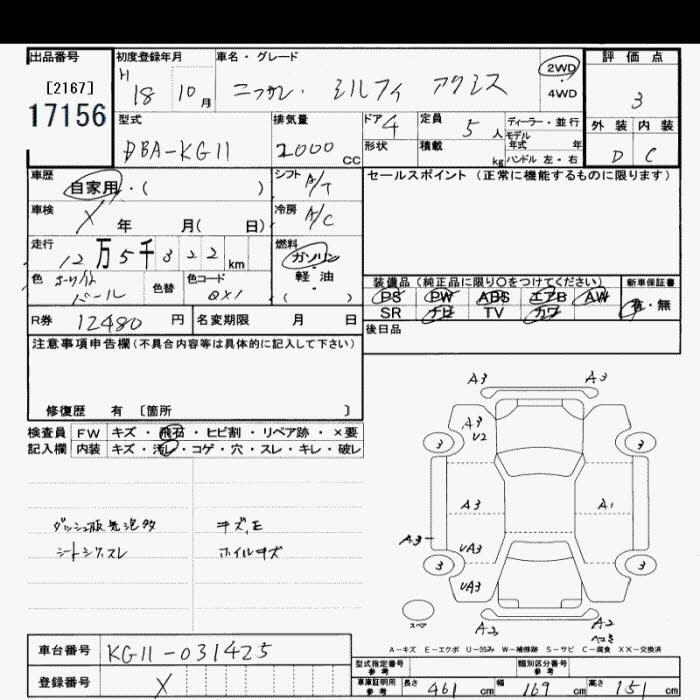 出品番号
[2167]
17156
初度登録年月
H 18 10月
車名・グレード
ニッサン シルフィ アクシス
2WD
・
4WD
評価点
3
外装 内装
D C
型式
DBA-KG11
排気量
2000 CC
ドア 4
形状
定員 5 人
積載 kg
ディーラー・並行
モデル年式 年
ハンドル 左・右
車歴
自家用・( )
車検 X 年 月( 日)
走行 12万5千322 km
色 ホワイト パール
色替
色コード QX1
シフト A/T
冷房 A/C
燃料
ガソリン
・
軽油
・
( )
セールスポイント(正常に機能するものに限ります)
装備品(純正品に限り○をつけてください)
PS PW ABS エアB AW
SR ナビ TV カワ
新車保証書
有・無
R券 12480 円
名変期限 月 日
後日品
注意事項申告欄(不具合内容等は具体的に記入して下さい)
修復歴 有 〔箇所 〕
検査員記入欄
FW キズ・飛石・ヒビ割・リペア跡・×要
内装 キズ・汚レ・コゲ・穴・スレ・キレ・破レ
キズ,E
シートシワ,スレ
ホイルキズ
A3 A3
A3
U2
3 3
A3 A1
A3
UA3
3 3
UA3
A3 A2
スペア
A−キズ E−エクボ U−凹み W−補修跡 S−サビ C−腐食 XX−交換済
車台番号 KG11-031425
登録番号 X
型式指定番号 参考
類別区分番号 参考
車庫証明用 参考
長さ 461 cm 幅 169 cm 高さ 151 cm